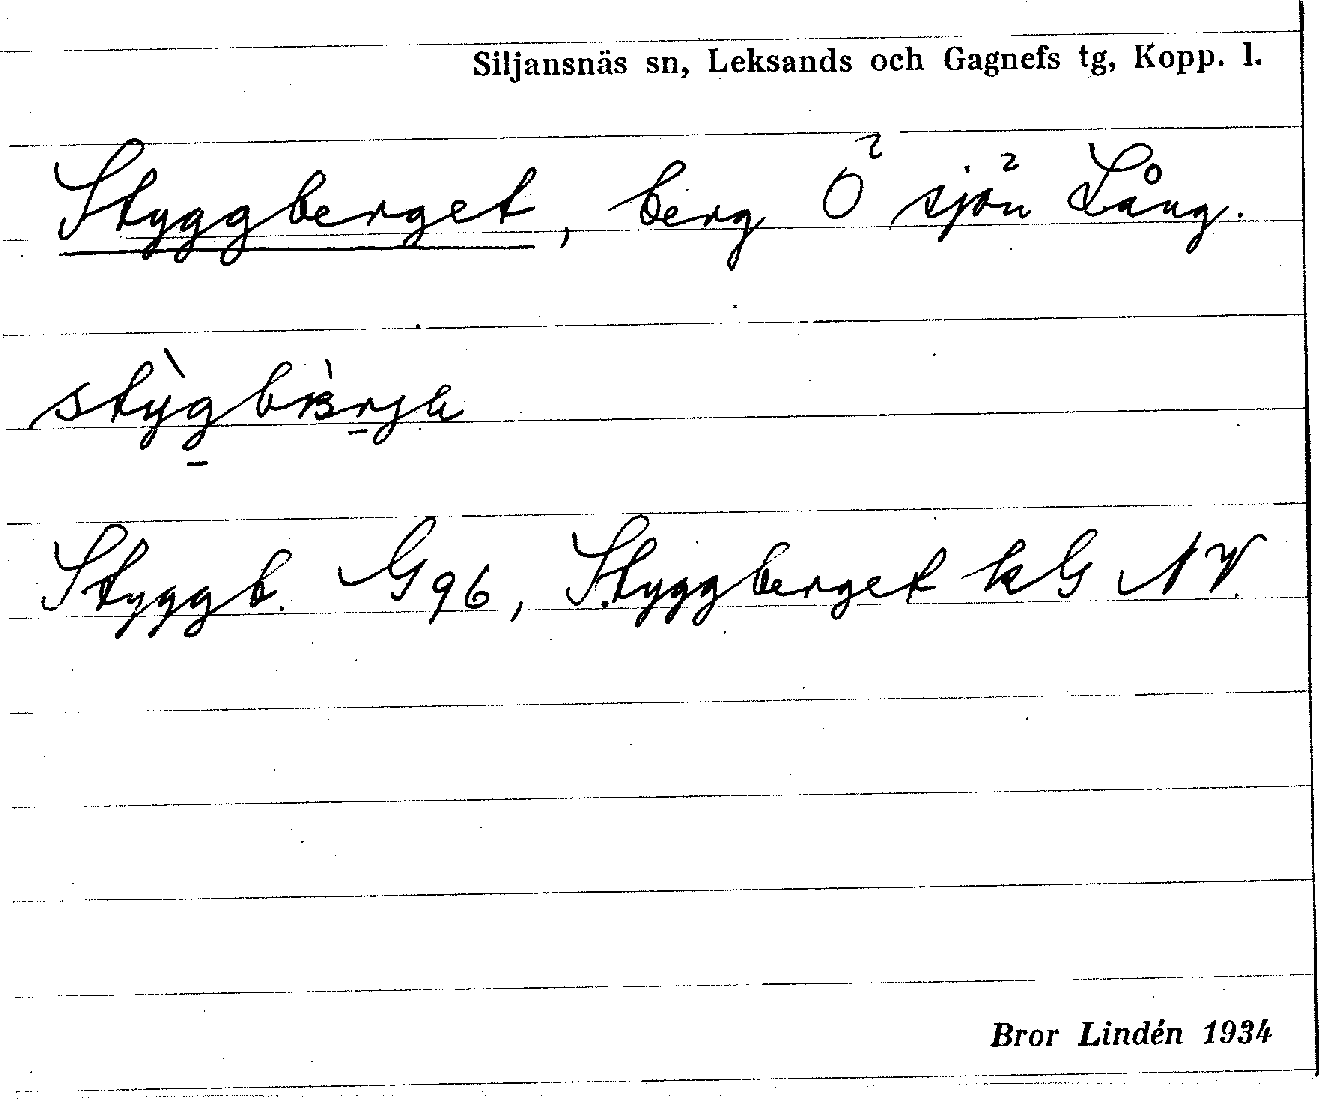 Siljansnäs sn, Leksands och Gagnefs tg, Kopp. l.
Styggberget, berg Ö sjön Lång.
Styggb. G 96, Styggberget kG NV.
Bror Lindén 1934